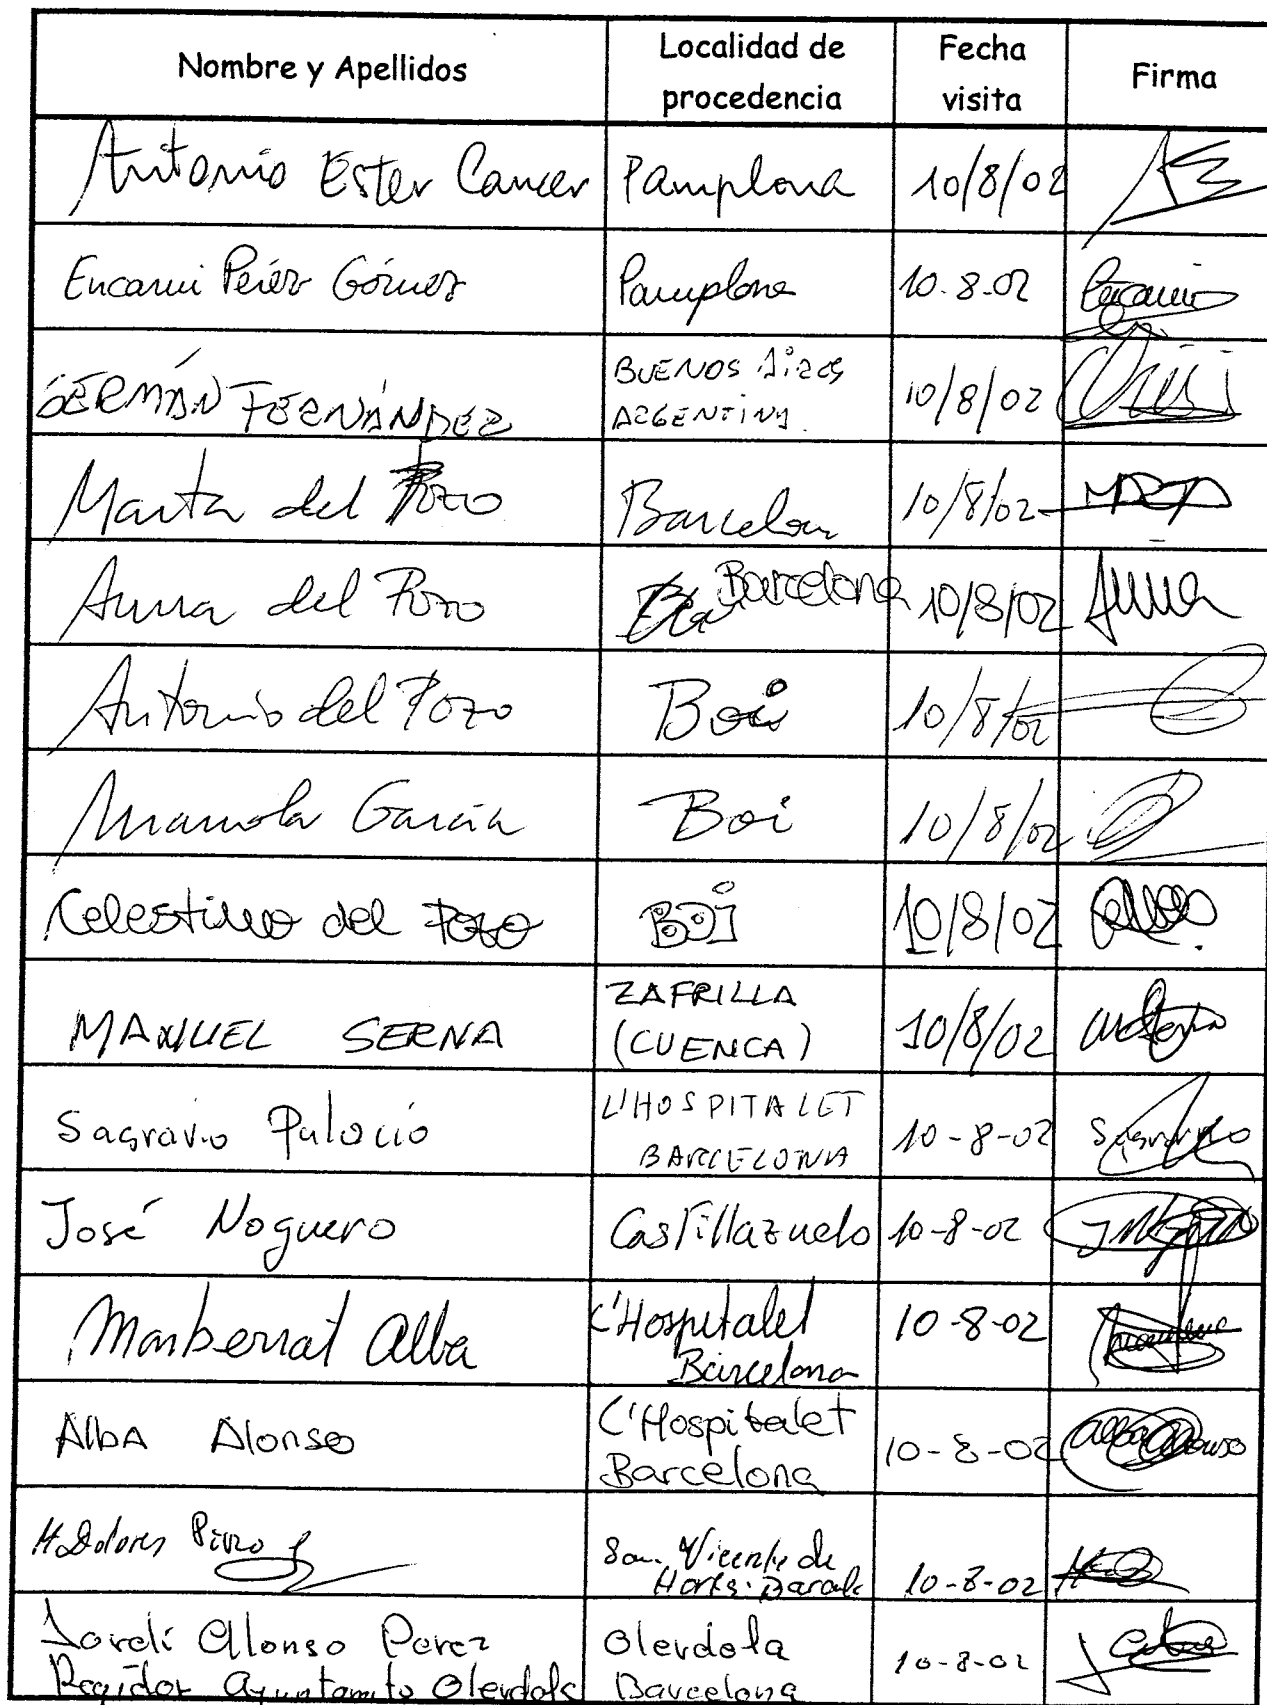 Nombre y Apellidos Localidad de procedencia Fecha visita Firma
Antonio Ester Cancer Pamplona 10/8/02
Encarni Peréz Gómez Pamplona 10.8.02
GERMÁN FERNÁNDEZ BUENOS Aires ARGENTINA. 10/8/02
Marta del Pozo Barcelona 10/8/02
Anna del Pozo Barcelona 10/8/02 Anna
Antonio del Pozo Boi 10/8/02
Manola García Boi 10/8/02
Celestino del Pozo BOI 10/8/02
MANUEL SERNA ZAFRILLA (CUENCA) 10/8/02
Sagrario Palocio L'HOSPITALET BARCELONA 10-8-02 Sagrario
José Noguero Castillazuelo 10-8-02
Montserrat Alba L'Hospitalet Barcelona 10-8-02
AlbA Alonso L'Hospitalet Barcelona 10-8-02 Alba Alonso
Mª Dolores San Vicente de Horts. 10-8-02
Jordi Alonso Perez Olerdola 10-8-02
Regidor Ayuntamito Olerdola Barcelona